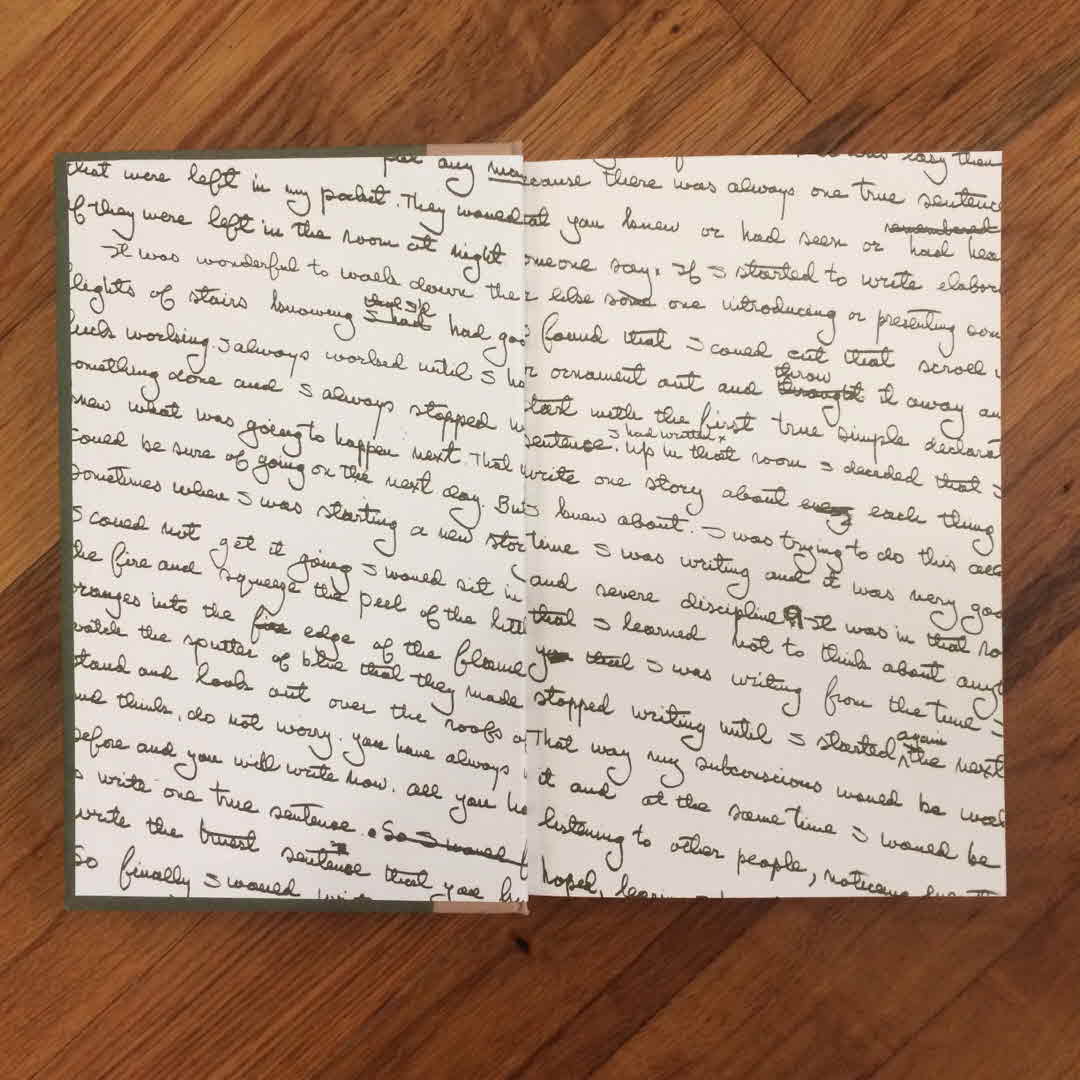 any
that were left in my pocket. They would
if they were left in the room at night
It was wonderful to walk down the
lights of stairs knowing that I'd I had had goo
luck working. I always worked until I ha
omething done and I always stopped w
new what was going to happen next. That
could be sure of going on the next day. But
sometimes when I was starting a new stor
I could not get it going I would sit in
the fire and squeeze the peel of the littl
oranges into the fire edge of the flame
watch the sputter of blue that they made
stand and look out over the roofs o
and think, do not worry. you have always
before and you will write now. all you ha
o write one true sentence. So I would
write the truest sentence that you kn
So finally I would writ
was easy then
ecause there was always one true sentence
at you knew or had seen or remembered had hea
omeone say. If I started to write elabor
r else some one introducing or presenting som
found that I could cut that scroll
r ornament out and throw throught it away an
tart with the first true simple declarat
sentence I had written. Up in that room I decided that I
write one story about each thing
I knew about. I was trying to do this all
time I was writing and it was very goo
and severe discipline. It was in that ro
that I learned not to think about anyt
that I was writing from the time I
stopped writing until I started again the next
That way my subconscious would be wor
it and at the same time I would be
listening to other people, noticing
hoped, lear